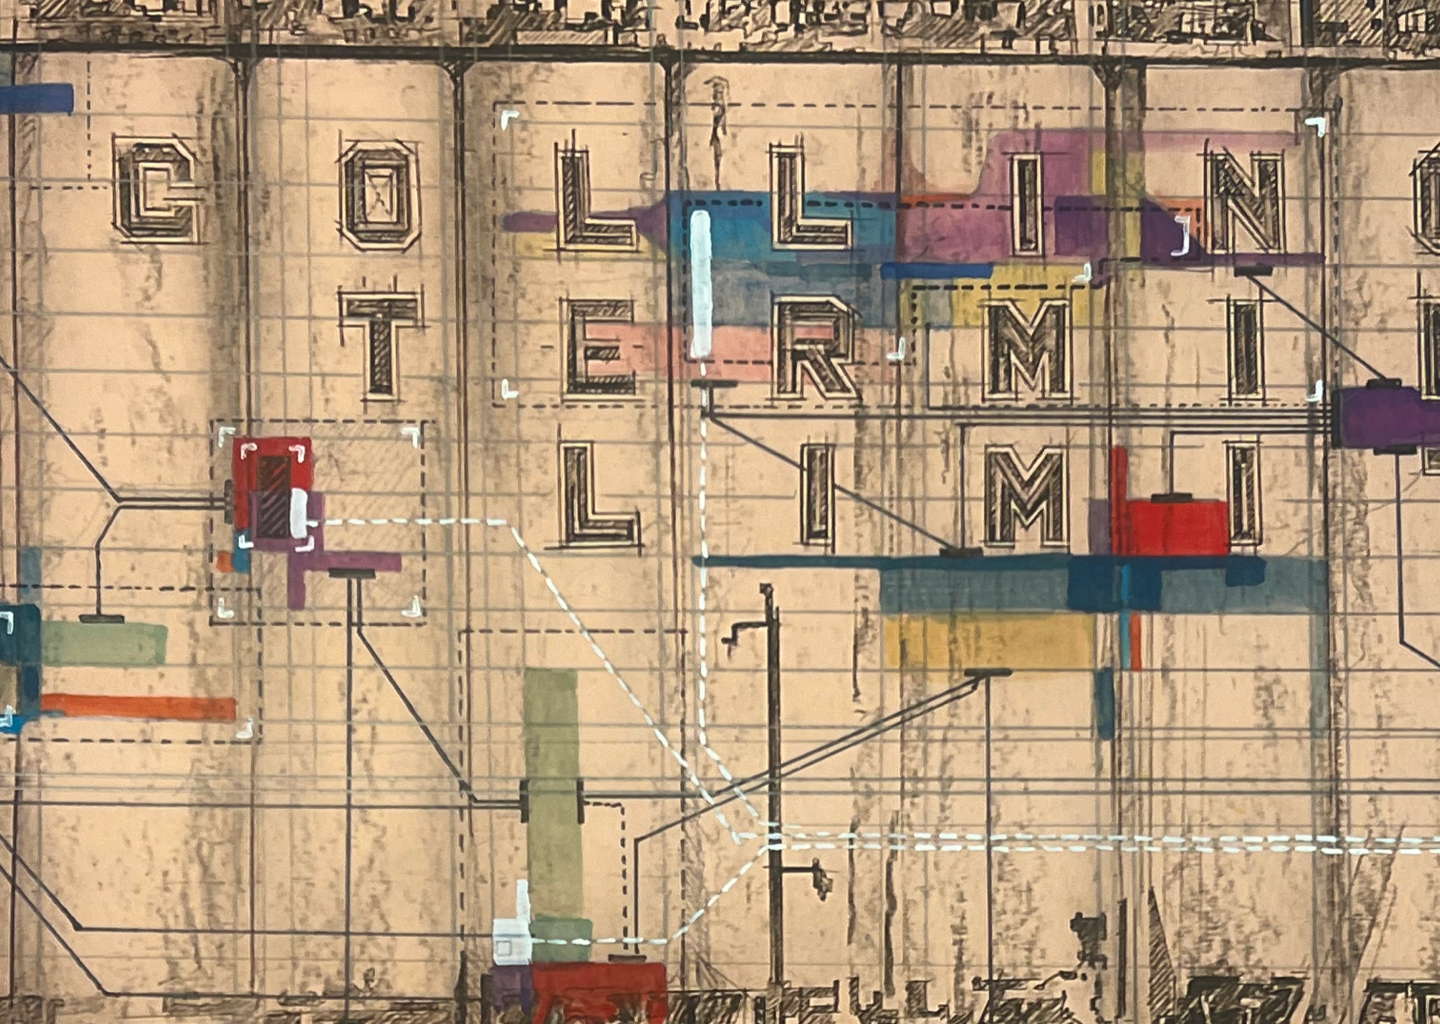 COLLIN
TERMI
LIMI